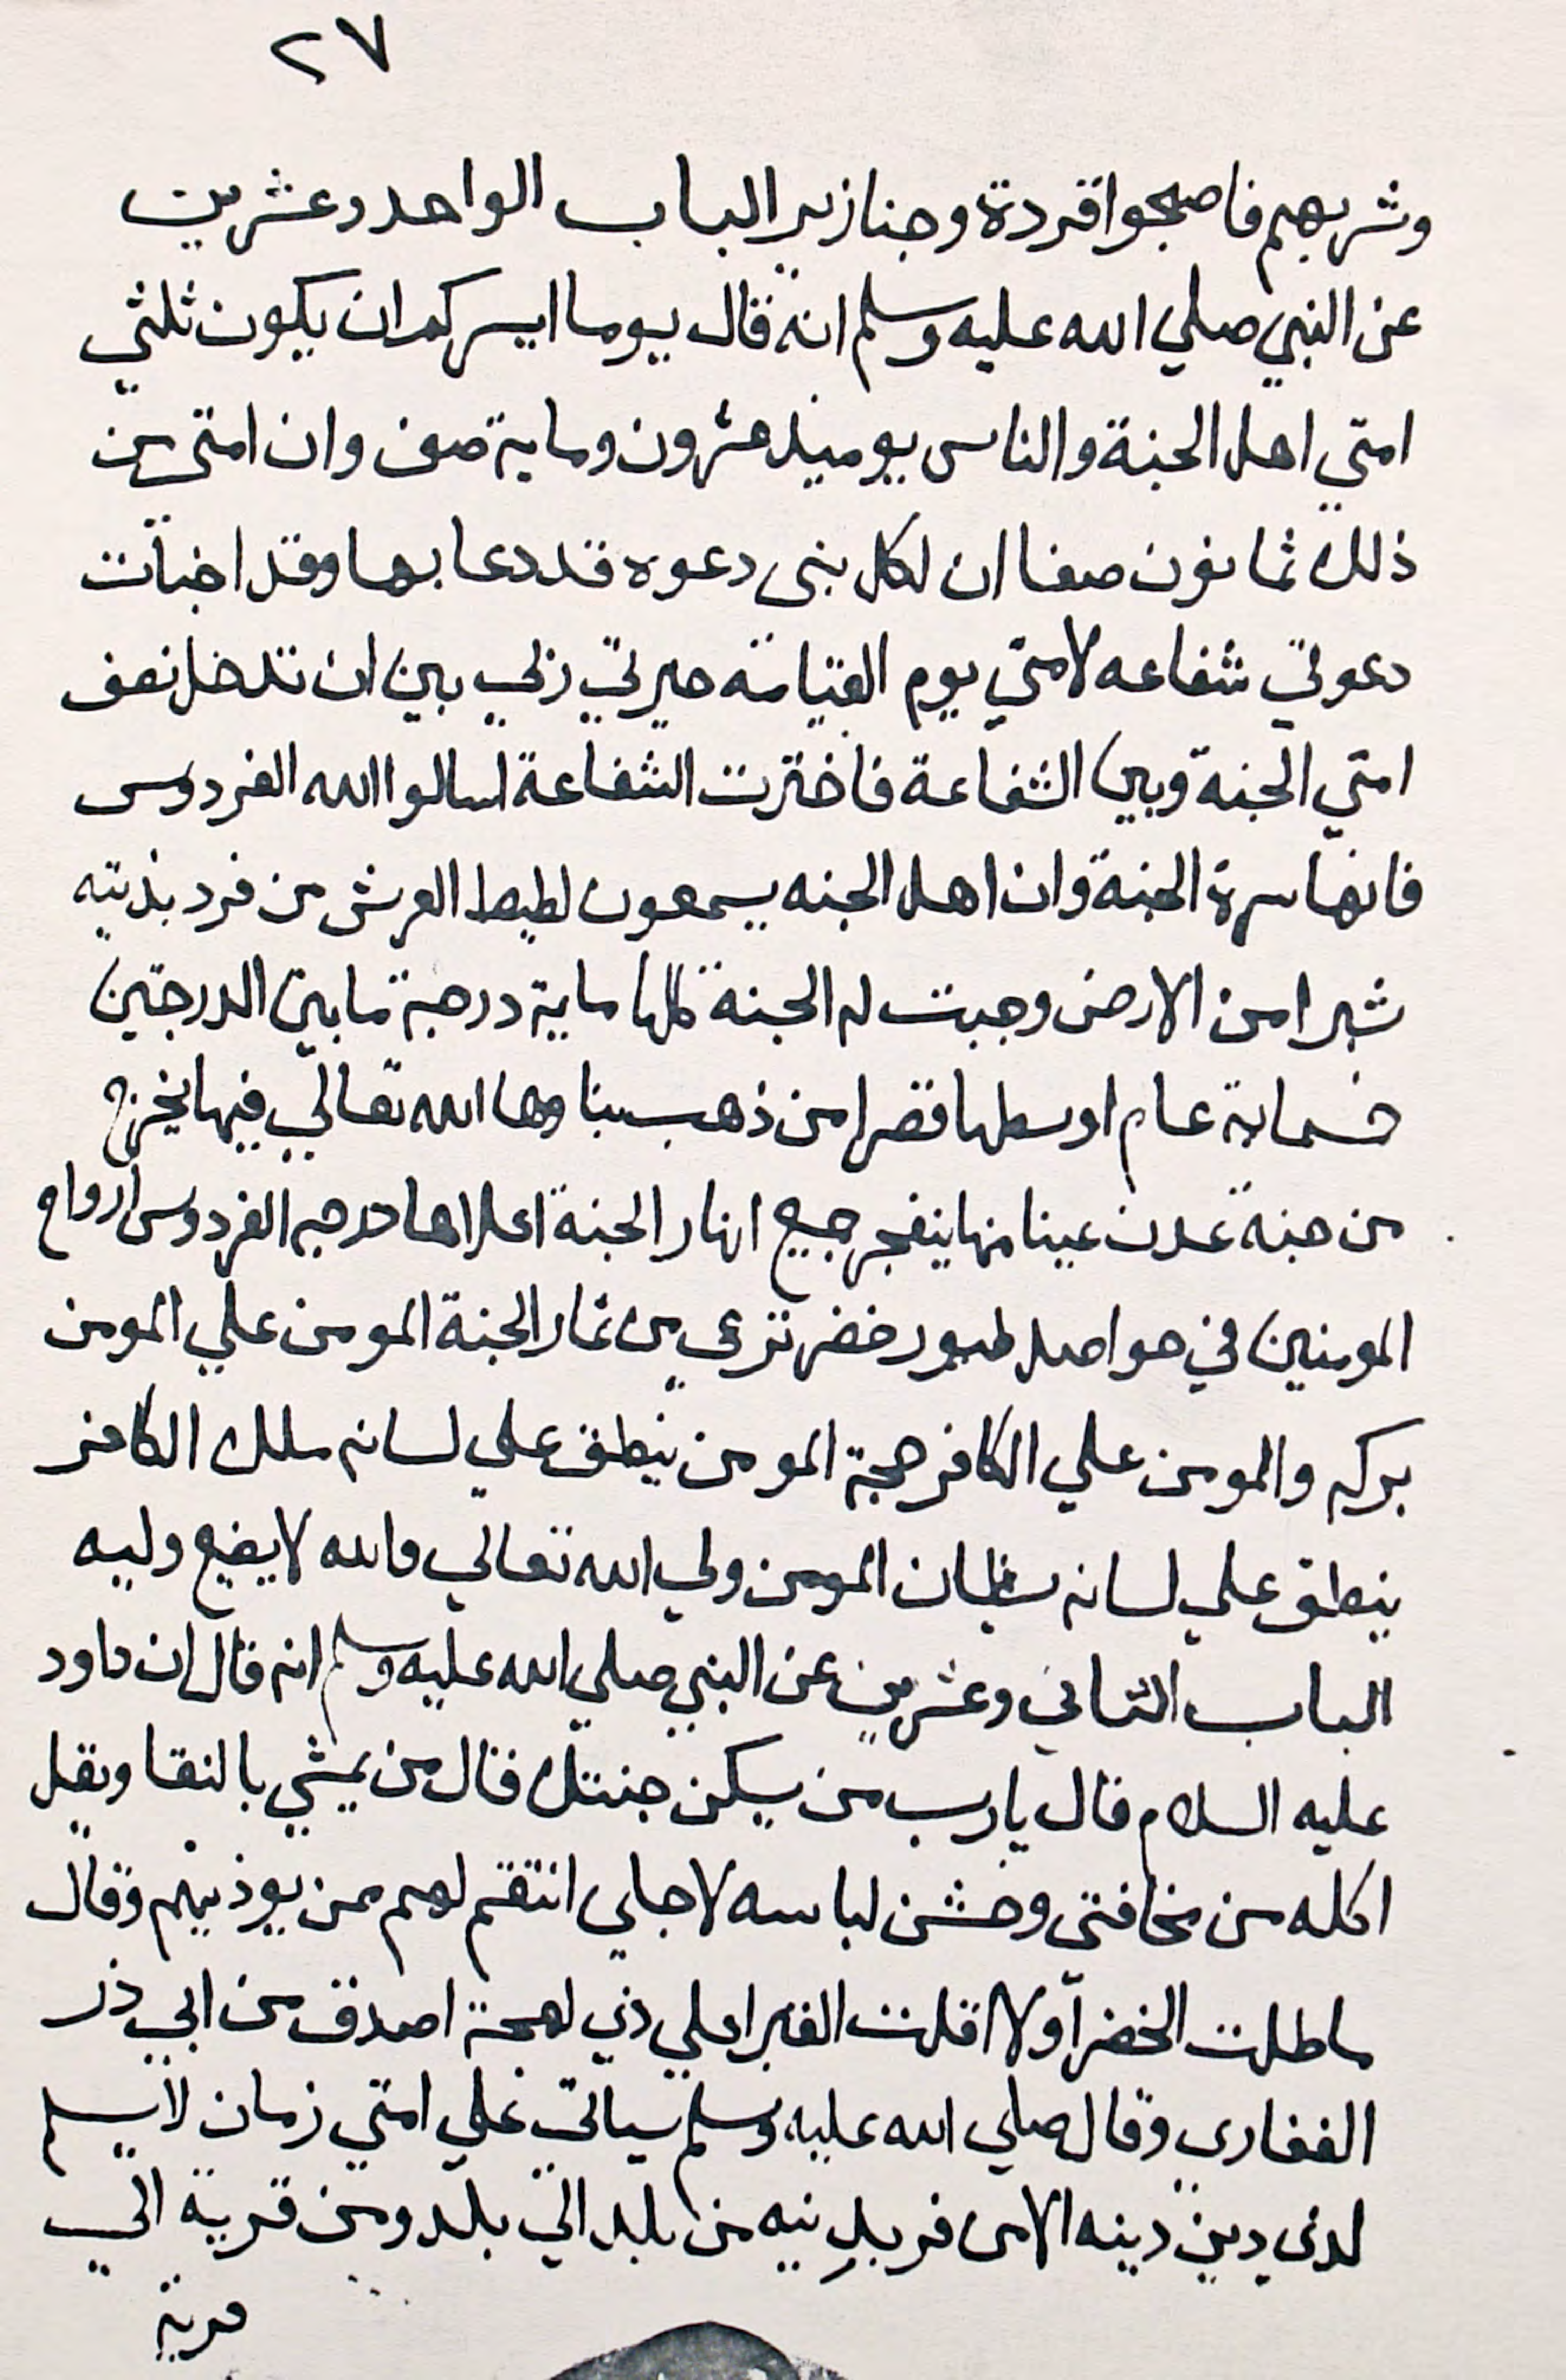 ٢٧
وشربهم فاصبحوا قردة وخنازير الباب الواحد وعشرين
عن النبي صلي الله عليه وسلم انه قال يوما ايسركم ان يكون ثلثي
امتي اهل الجنة والناس يوميذ عشرون وماية صف وان امتي من
ذلك ثمانون صفا ان لكل بنى دعوه قد دعا بها وقد اخبات
دعوتي شفاعه لامتي يوم القيامة خيرني ربي بين ان تدخل نصف
امتي الجنة وبين الشفاعة فاخترت الشفاعة اسالوا الله الفردوس
فانها سرة الجنة وان اهل الجنه يسمعون اطيط العرش من فرد بذنته
شبرا من الارض وجبت له الجنة كلها ماية درجة ما بين الدرجتين
خسماية عام اوسطها قصرا من ذهب بناوها الله تعالي فيها يخرج
من جنة عدن عينا منها ينفجر جميع انهار الجنة اعلاها درجه الفردوس ارواح
المومنين في حواصل طيور خضر ترعى من ثمار الجنة المومن علي المومن
بركه والمومن علي الكافر حجة المومن ينطق علي لسانه ملك الكافر
ينطق علي لسانه شيطان المومن ولي الله تعالي والله لا يضيع وليه
الباب الثاني وعشرين عن النبي صلي الله عليه وسلم انه قال ان داود
عليه السلام قال يا رب من يسكن جنتك قال من يمشي بالنقا ويقل
اكله من مخافتى وخشن لباسه لاجلي انتقم لهم ممن يوذيهم وقال
ما طلت الخضرا ولا اقلت الغبرا علي ذي لهجة اصدق من ابي ذر
الغفارى وقال صلي الله عليه وسلم سياتي علي امتي زمان لا يسلم
لذى دين دينه الا من فر بدينه من بلد الي بلد ومن قرية الي
قرية